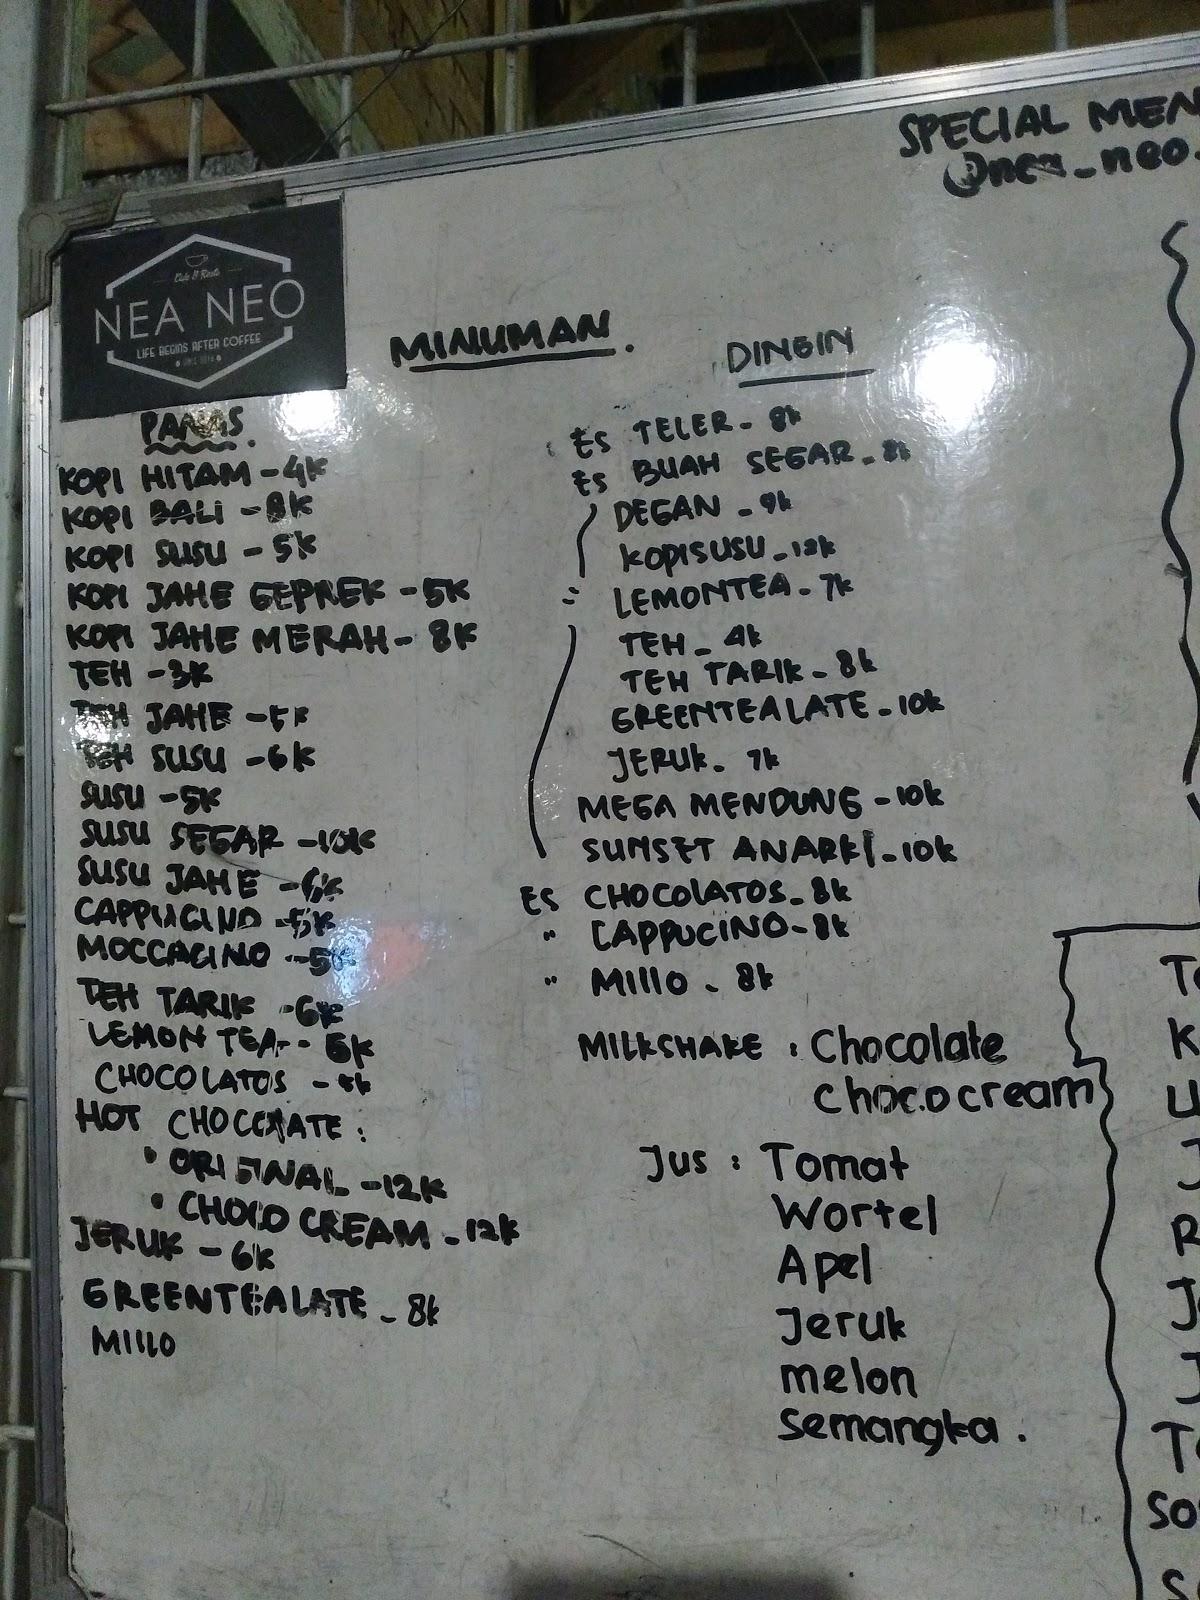 SPECIAL MEN
@nea_neo.
Cafe & Resto
NEA NEO
LIFE BEGINS AFTER COFFEE
MINUMAN.
PANAS.
KOPI HITAM - 4K
KOPI BALI - 8K
KOPI SUSU - 5K
KOPI JAHE GEPREK - 5K
KOPI JAHE MERAH - 8K
TEH - 3K
TEH JAHE - 5K
TEH SUSU - 6K
SUSU - 5K
SUSU SEGAR - 10K
SUSU JAHE - 6K
CAPPUCINO - 5K
MOCCACINO - 5K
TEH TARIK - 6K
LEMON TEA - 6K
CHOCOLATOS -
HOT CHOCOLATE :
• ORIGINAL - 12K
• CHOCO CREAM - 12K
JERUK - 6K
GREENTEALATE - 8k
MILLO
DINGIN
ES TELER - 8k
ES BUAH SEGAR - 8k
DEGAN - 9k
KOPISUSU - 12k
LEMONTEA - 7k
TEH - 4k
TEH TARIK - 8k
GREENTEALATE - 10k
JERUK - 7k
MEGA MENDUNG - 10k
SUNSET ANARKI - 10k
ES CHOCOLATOS - 8k
" CAPPUCINO - 8k
" MILLO - 8k
MILKSHAKE : Chocolate
chococream
Jus : Tomat
Wortel
Apel
Jeruk
melon
Semangka .